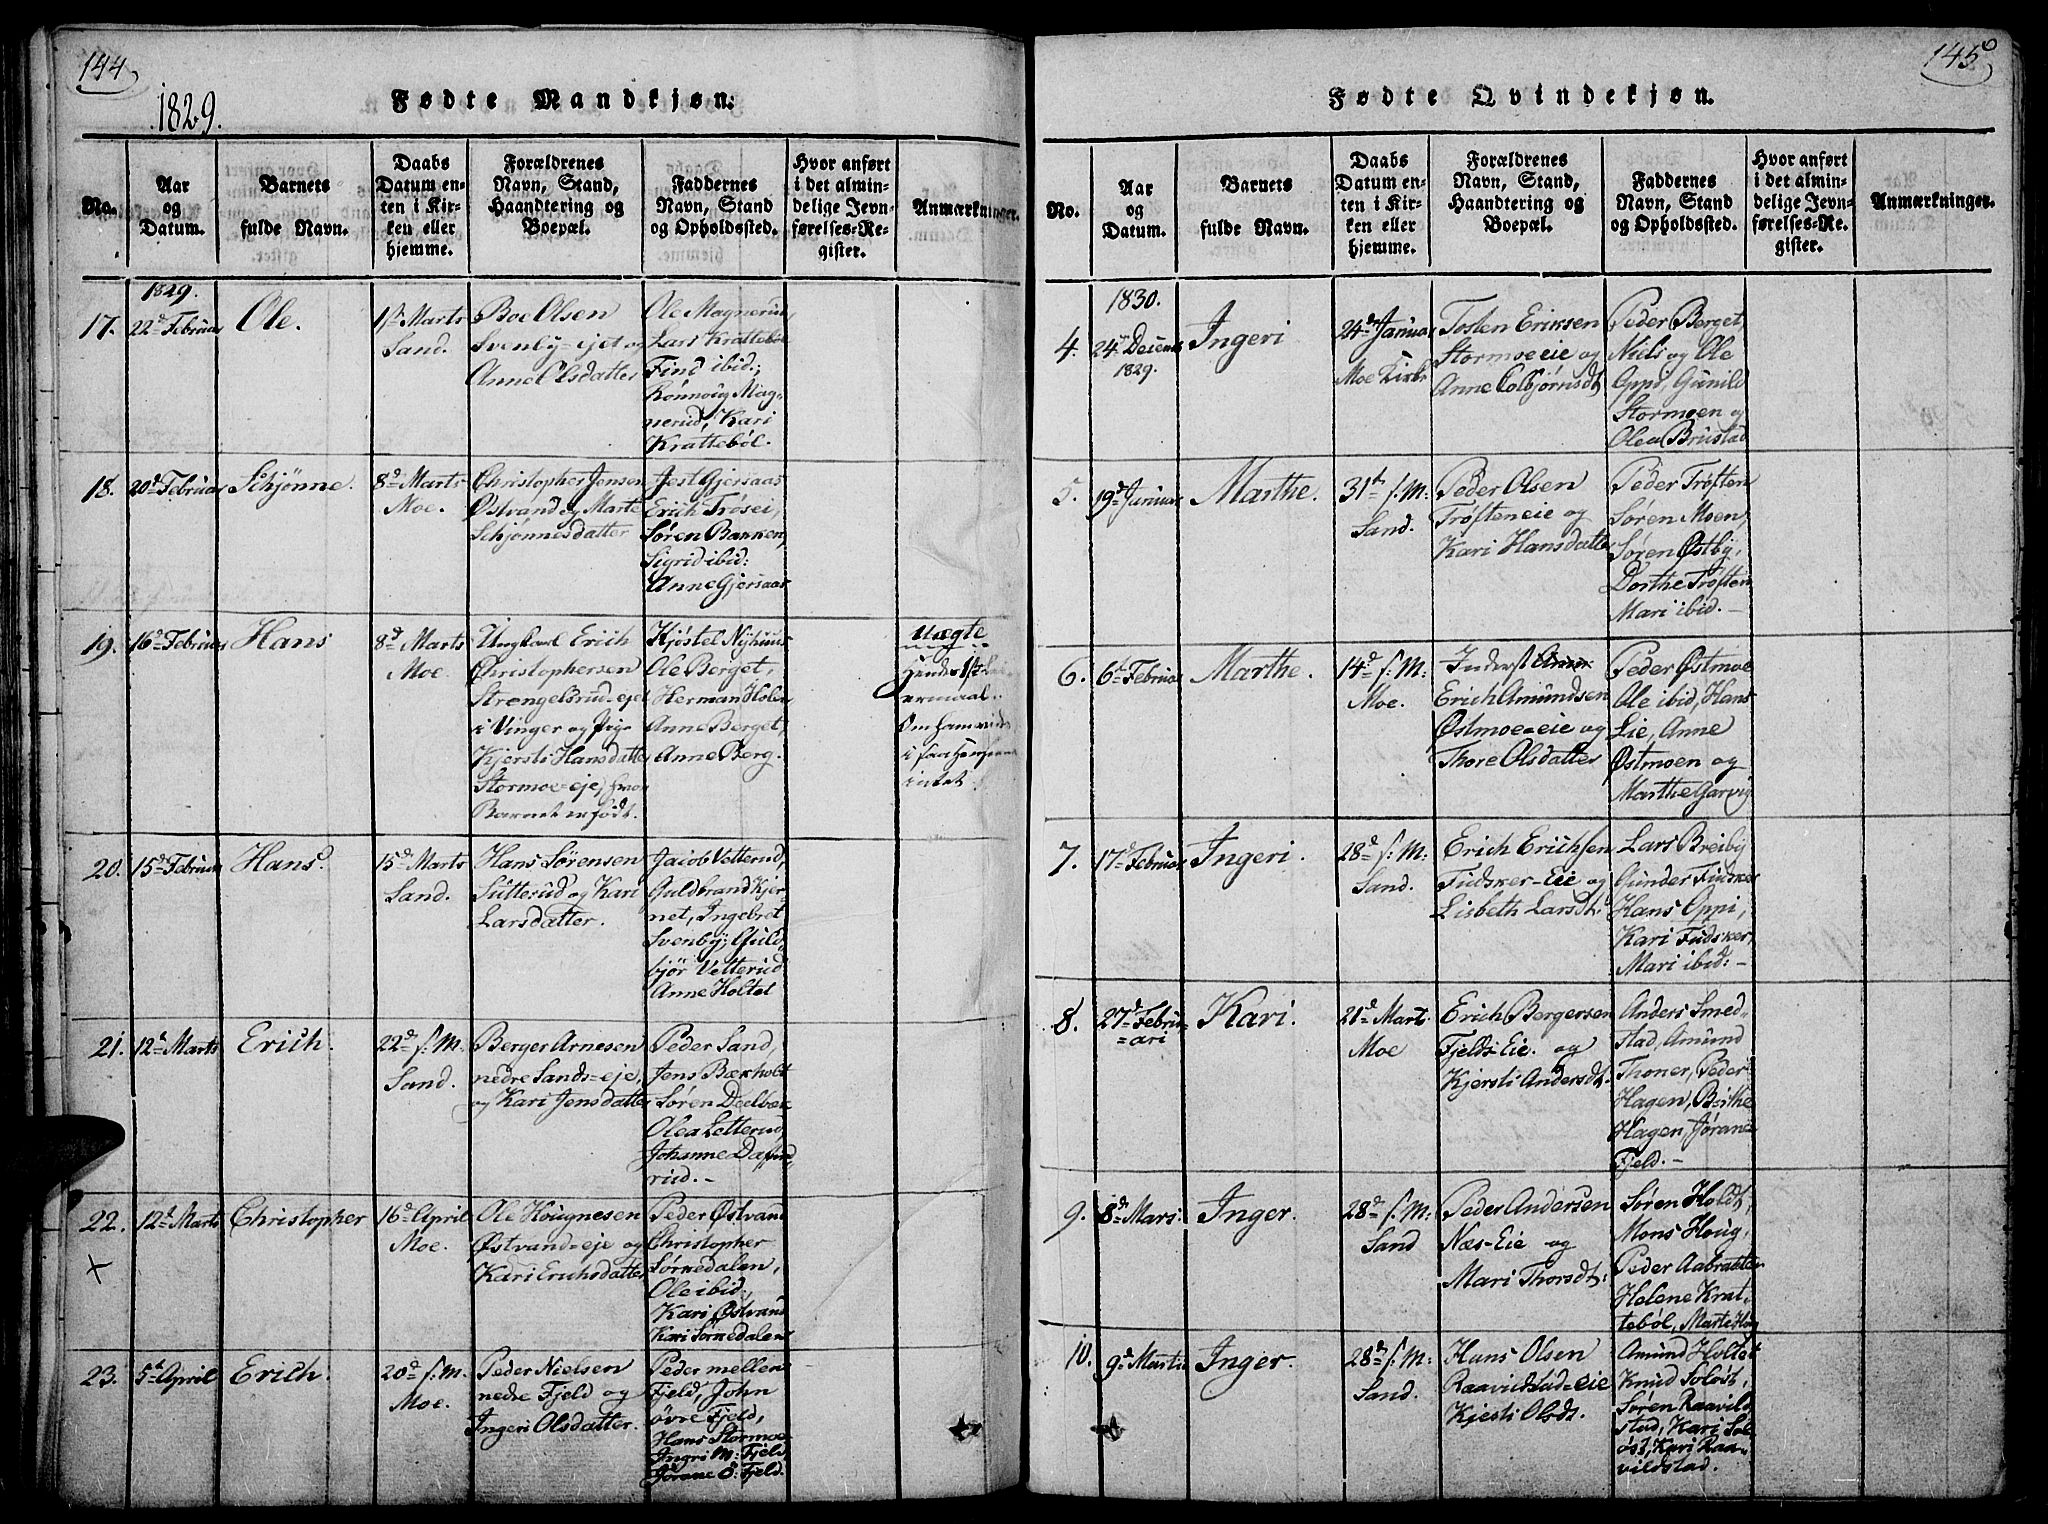 144
1829.
Fødte Mandkjøn.
No.
Aar
og
Datum.
Barnets
fulde Navn.
Daabs
Datum en-
ten i Kir-
ken eller
hjemme.
Forældrenes
Navn, Stand,
Haandtering og
Boepæl.
Faddernes
Navn, Stand
og Opholdssted.
Hvor anført
i det almin-
delige Jevn-
førelses-Re-
gister.
Anmærkninger.
17.
1829.
22d Februar
Ole.
1ste Marts
Sand.
Boe Olsen
Svenby-ejet og
Anne Olsdatter
Ole Magnerud,
Lars Kratteböl
Find ibid.;
Rönnoug Mag-
nerud, Kari
Kratteböl.
18.
20d Februar
Schjönne.
8d Marts
Moe.
Christopher Jensen
Østvand og Marte
Schjönnesdatter
Jost Gjersaas
Erich Trösei,
Sören Bakken,
Sigrid ibid:
Anne Gjersaas
19.
16d Februar
Hans
8d Marts
Moe.
Ungkarl Erich
Christophersen
Strengelsrud-ejet
i Vinger og Pige
Kjersti Hansdatter
Stormoe-eje, hvor
Barnet er födt.
Kjöstel Nyhuus
Ole Berget,
Herman Holen
Anne Berget,
Anne Berg.
Uægte
20.
15d Februar
Hans
15d Marts
Sand.
Hans Sörensen
Sutterud og Kari
Larsdatter.
Jacob Vetterud,
Guldbrand Kjer-
net, Ingebret
Svenby; Guld-
björ Vetterud
Anne Holtet
21.
12d Marts
Erich.
22d s. M.
Sand.
Berger Arnesen
nedre Sands-eje,
og Kari Jensdatter
Peder Sand,
Jens Bækholt
Sören Deelbæk
Olea Letterud,
Johanne
rud.-
22.
12d Marts
Christopher
16d April
Moe.
Ole Hougnesen
Østvand-eje og
Kari Erichsdatter
Peder Østvand
Christopher
Sörnedalen,
Ole ibid.,
Kari Østvand
Kari Sörnedalen
23.
5t April
Erich.
20d s. M.
Moe.
Peder Nielsen
nedre Fjeld og
Ingeri Olsdatter.
Peder mellem
Fjeld, John
övre Fjeld,
Hans Stormoe
Ingri M: Fjeld
Jörane Ö: Fjeld.
145
Fødte Qvindekjøn.
No.
Aar
og
Datum.
Barnets
fulde Navn.
Daabs
Datum en-
ten i Kir-
ken eller
hjemme.
Forældrenes
Navn, Stand,
Haandtering og
Boepæl.
Faddernes
Navn, Stand
og Opholdssted.
Hvor anført
i det almin-
delige Jevn-
førelses-Re-
gister.
Anmærkninger.
4.
1830.
24de Decemb
1829.
Ingeri
24de Januar
Moe Kirke
Tosten Eriksen
Stormoe eie og
Anne Colbjörnsdt
Peder Berget,
Niels og Ole
Oppi, Gunild
Stormoen og
Olea Brustad
5.
19d Januar
Marthe.
31t s. M:
Sand.
Peder Olsen
Tröften eie og
Kari Hansdatter
Peder Tröften
Sören Moen,
Sören Østby,
Dorthe Tröften
Mari ibid.-
6.
6t Februar
Marthe.
14d s. M:
Moe.
Inderst
Erich Amundsen
Østmoe-eie og
Thore Olsdatter
Peder Østmoe
Ole ibid, Hans
Lie, Anne
Østmoen og
Marthe Garvig
7.
17d Februar
Ingeri.
28d s. M:
Sand.
Erich Erichsen
Fudsker-Eie og
Lisbeth Larsdt.
Lars Breiby
Gunder Fudsker
Hans Oppi,
Kari Fudsker,
Mari ibid:-
8.
27d Febru-
=ari
Kari.
21d Mart.
Moe
Erich Bergersen
Fjelds-Eie. og
Kjersti Andersdt.
Anders Smed-
stad, Amund
Thoner, Peder
Hagen, Birthe
Hagen, Jörane
Fjeld.-
9.
8d Mars:
Inger.
28d s. M:
Sand
Peder Andersen
Næs-Eie og
Mari Thorsdt:
Sören Holdt,
Mons Houg,
Peder Aabratten
Helene Krat-
teböl, Marte Houg
10.
9d Marti
Inger.
28d s. M:
Sand.
Hans Olsen
Raavildstad-eie
Kjesti Olsdt.
Amund Holtet
Knud Soløst,
Sören Raavild
stad, Kari Sol
øst, Kari Raa-
vildstad.